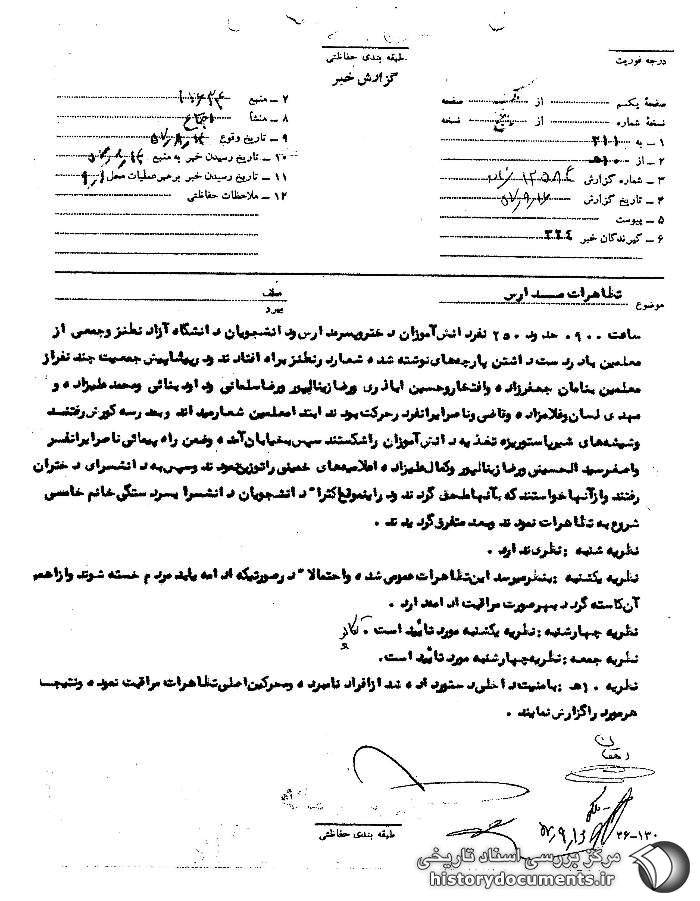 درجه فوریت
طبقه بندی حفاظتی
گزارش خبر
صفحهٔ یکم از صفحه
نسخهٔ شماره از نسخه
۱ – به ۳۱۱
۲ – از ۱۰ه
۳ – شماره گزارش
۴ – تاریخ گزارش
۵ – پیوست
۶ – گیرندگان خبر ۳۲۴
۷ – منبع
۸ – منشأ
۹ – تاریخ وقوع
۱۰ – تاریخ رسیدن خبر به منبع
۱۱ – تاریخ رسیدن خبر برهبرعملیات محل
۱۲ – ملاحظات حفاظتی
موضوع تظاهرات مدارس
سلف
پیرو
ساعت ۰۹۰۰ حدود ۲۵۰ نفر دانش‌آموزان دختروپسرمدارس ودانشجویان دانشگاه آزاد نطنز وجمعی از
معلمین بادردست داشتن پارچه‌های نوشته شده شعارد رنطنز براه افتادند ودرپیشاپیش جمعیت چند نفراز
معلمین بنامان جعفرزاده وافتخاروحسین اباذری ورضا زینالپور ورضاسلمانی وداودبنائی ومحمد علیزاده و
مهدی لسان وغلامزاده وقاضی وناصرایرانفرد رحرکت بودند ابتدامعلمین شعارمیدادند وبمدرسه کورش رفتند
وشیشه‌های شیرپاستوریزه تغذیه دانش‌آموزان راشکستند سپس بخیابان آمده وضمن راه پیمائی ناصرایرانفر
واصغرسید الحسینی ورضا زینالپور وکمال علیزاده اعلامیه‌های خمینی راتوزیع نمودند وسپس به دانشسرای دختران
رفتند وازآنهاخواستند که بآنها ملحق گردند ودراینموقع اکثرا" دانشجویان دانشسرا بسردستگی خانم خامسی
شروع به تظاهرات نمودند وبعد متفرق گردیدند .
نظریه شنبه : نظری ندارد .
نظریه یکشنبه : بنظرمیرسد این تظاهرات عمومی شده واحتمالا" درصورتیکه ادامه یابد مردم خسته شوند وازاهمیت
آن کاسته گردد بهرصورت مراقبت ادامه دارد .
نظریه چهارشنبه : نظریه یکشنبه مورد تائید است .
نظریه جمعه : نظریه چهارشنبه مورد تائید است .
نظریه ۱۰ه : بامنیت داخلی دستورداده شد ازافراد نامبرده ومحرکین اصلی تظاهرات مراقبت نموده ونتیجه
هرمورد راگزارش نمایند .
دهقان
طبقه بندی حفاظتی
۳۶-۱۳۰
مرکز بررسی اسناد تاریخی
historydocuments.ir